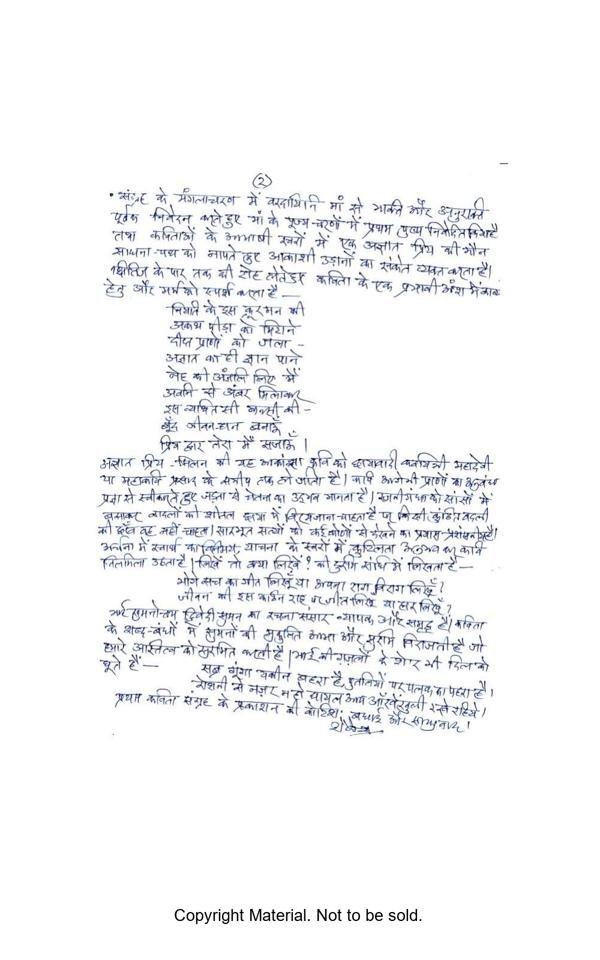 (2)
• संग्रह के मंगलाचरण में वरदायिनी माँ से भक्ति और अनुरक्ति
पूर्वक निवेदन करते हुए माँ के पूज्य-चरणों में प्रथम पुष्प निवेदित किया है
तथा कविताओं के स्वरों में एक अज्ञात प्रिय की मौन
साधना-पथ को नापते हुए आकाशी उड़ानों का संकेत व्यक्त करता है।
क्षितिज के पार तक की टोह लेते हुए कविता के एक प्रभावी अंश में
हेतु और मर्म को स्पर्श करता है —
नियति के इस क्रूर मन की
अकथ पीड़ा को मिटाने
दीप्त प्राणों को जला -
अज्ञात का ही ज्ञान पाने
नेह की अंजलि लिए मैं
अवनि से अंबर मिलाकर
इस व्यथित सी की -
बूँद जीवन-दान बनाऊँ
प्रिय द्वार तेरा मैं सजाऊँ।
अज्ञात प्रिय-मिलन की यह आकांक्षा कवि को छायावादी कवयित्री महादेवी
या महाकवि प्रसाद के समीप तक ले जाती है। कवि प्राणों का
से स्वीकारते हुए जड़ता से चेतन का उद्गम मानता है। रजनीगंधा की सांसों में
बसाकर बादलों की शीतल छाया में है पर किसी बदली
की छाँव वह नहीं चाहता। सारभूत सत्यों को कई कोणों से देखने का प्रयास है।
अर्चना में स्वार्थ का याचना के स्वरों में कुटिलता कवि
तिलमिला उठता है। लिखें तो क्या लिखें? की में लिखता है —
गीत लिखूँ या अपना राग विराग लिखूँ?
जीवन की इस कठिन राह पर जीत लिखूँ या हार लिखूँ?
भाई द्विवेदी सुमन का रचना संसार व्यापक और समृद्ध है। कविता
के शब्द-बंधों में सुमनों की आभा और सुरभि विराजती है जो
हमारे अस्तित्व को सुरभित करती है। भाई की ग़ज़लों के शेर भी दिल को
छूते हैं —
सब्र गूंगा यकीन बहरा है, पुतलियों पर पलक का पहरा है।
रोशनी से नज़र न हो घायल आप आँखें खुली रखे रहिये।
प्रथम कविता संग्रह के प्रकाशन की बधाई और साधुवाद!
Copyright Material. Not to be sold.